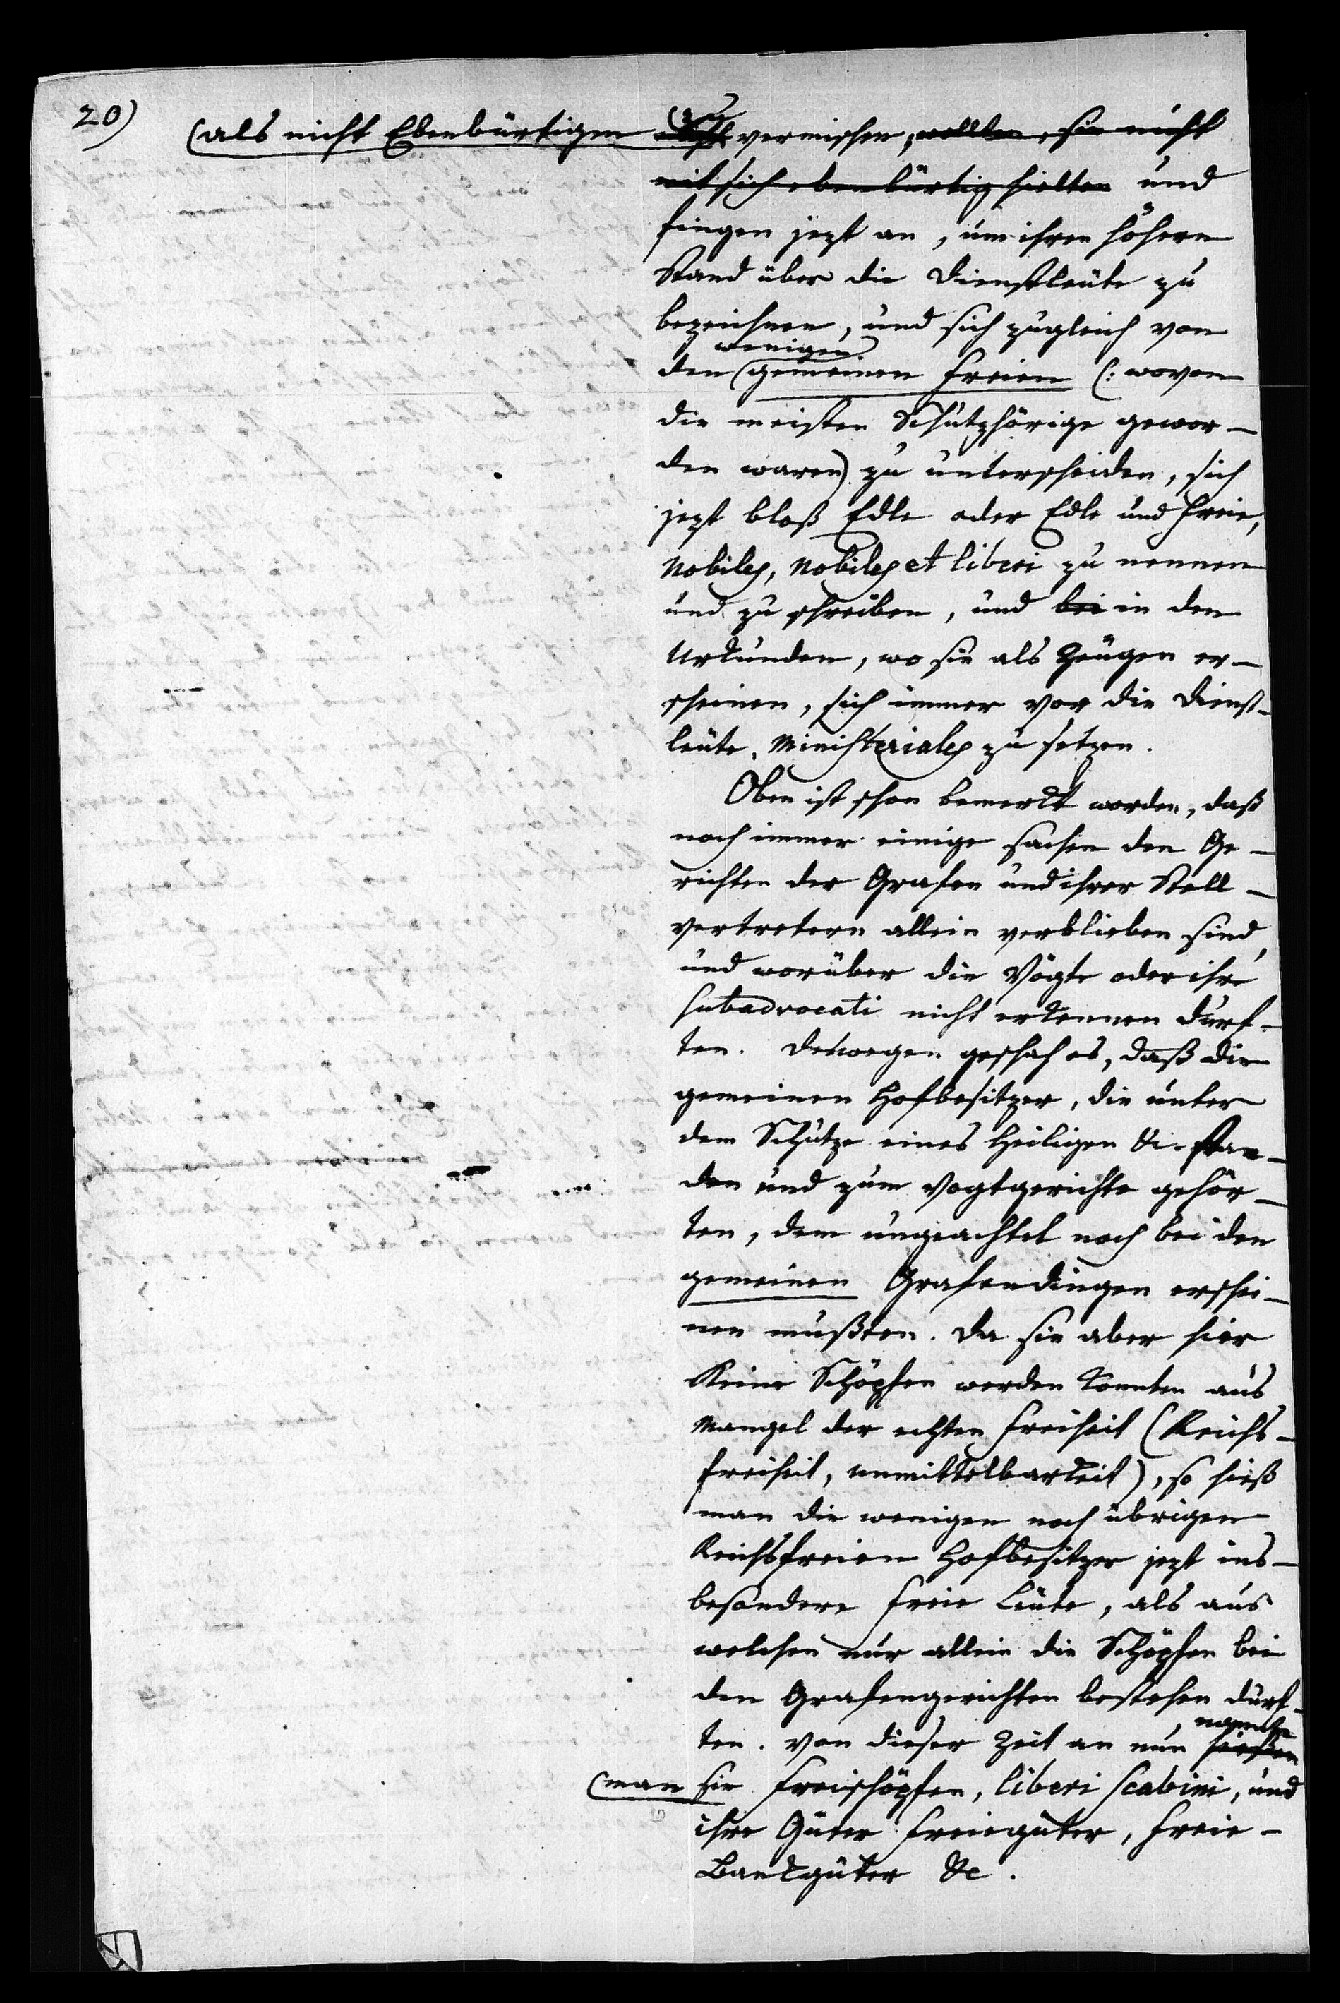 20)
(als nicht Ebenbürtigen vermischen, wollten, sie nicht
mit sich ebenbürtig hielten und
fingen jezt an, um ihren höhern
Stand über die Dienstleute zu
bezeichnen, und sich zugleich von
wenigen
den gemeinen Freien (: wovon
die meisten Schutzhörige gewor-
den waren) zu unterscheiden, sich
jezt bloß Edle oder Edle und Freie,
Nobiles, Nobiles et liberi zu nennen
und zu schreiben, und bei in den
Urkunden, wo sie als Zeugen er-
scheinen, sich immer vor die Dienst-
leute, Ministeriales zu setzen.
Oben ist schon bemerkt worden, daß
noch immer einige Sachen den Ge-
richten der Grafen und ihrer Stell-
vertretern allein verblieben sind,
und worüber die Vögte oder ihre
subadvocati nicht erkennen durf-
ten. Deswegen geschah es, daß die
gemeinen Hofbesitzer, die unter
dem Schutze eines Heiligen &c. stan-
den und zum Vogtgerichte gehör-
ten, dem ungeachtet noch bei den
gemeinen Grafendingen erschei-
nen mußten. Da sie aber hier
keine Schöpfen werden konnten aus
Mangel der echten Freiheit (Reichs-
freiheit, unmittelbarkeit), so hieß
man die wenigen noch übrigen
Reichsfreien Hofbesitzer jezt ins-
besondere Freie Leute, als aus
welchen nur allein die Schöpfen bei
den Grafengerichten bestehen durf-
ten. Von dieser Zeit an nun hießen
nannte
(man sie Freischöpfen, liberi scabini, und
ihre Güter Freiegüter, Freie-
Bankgüter &c.